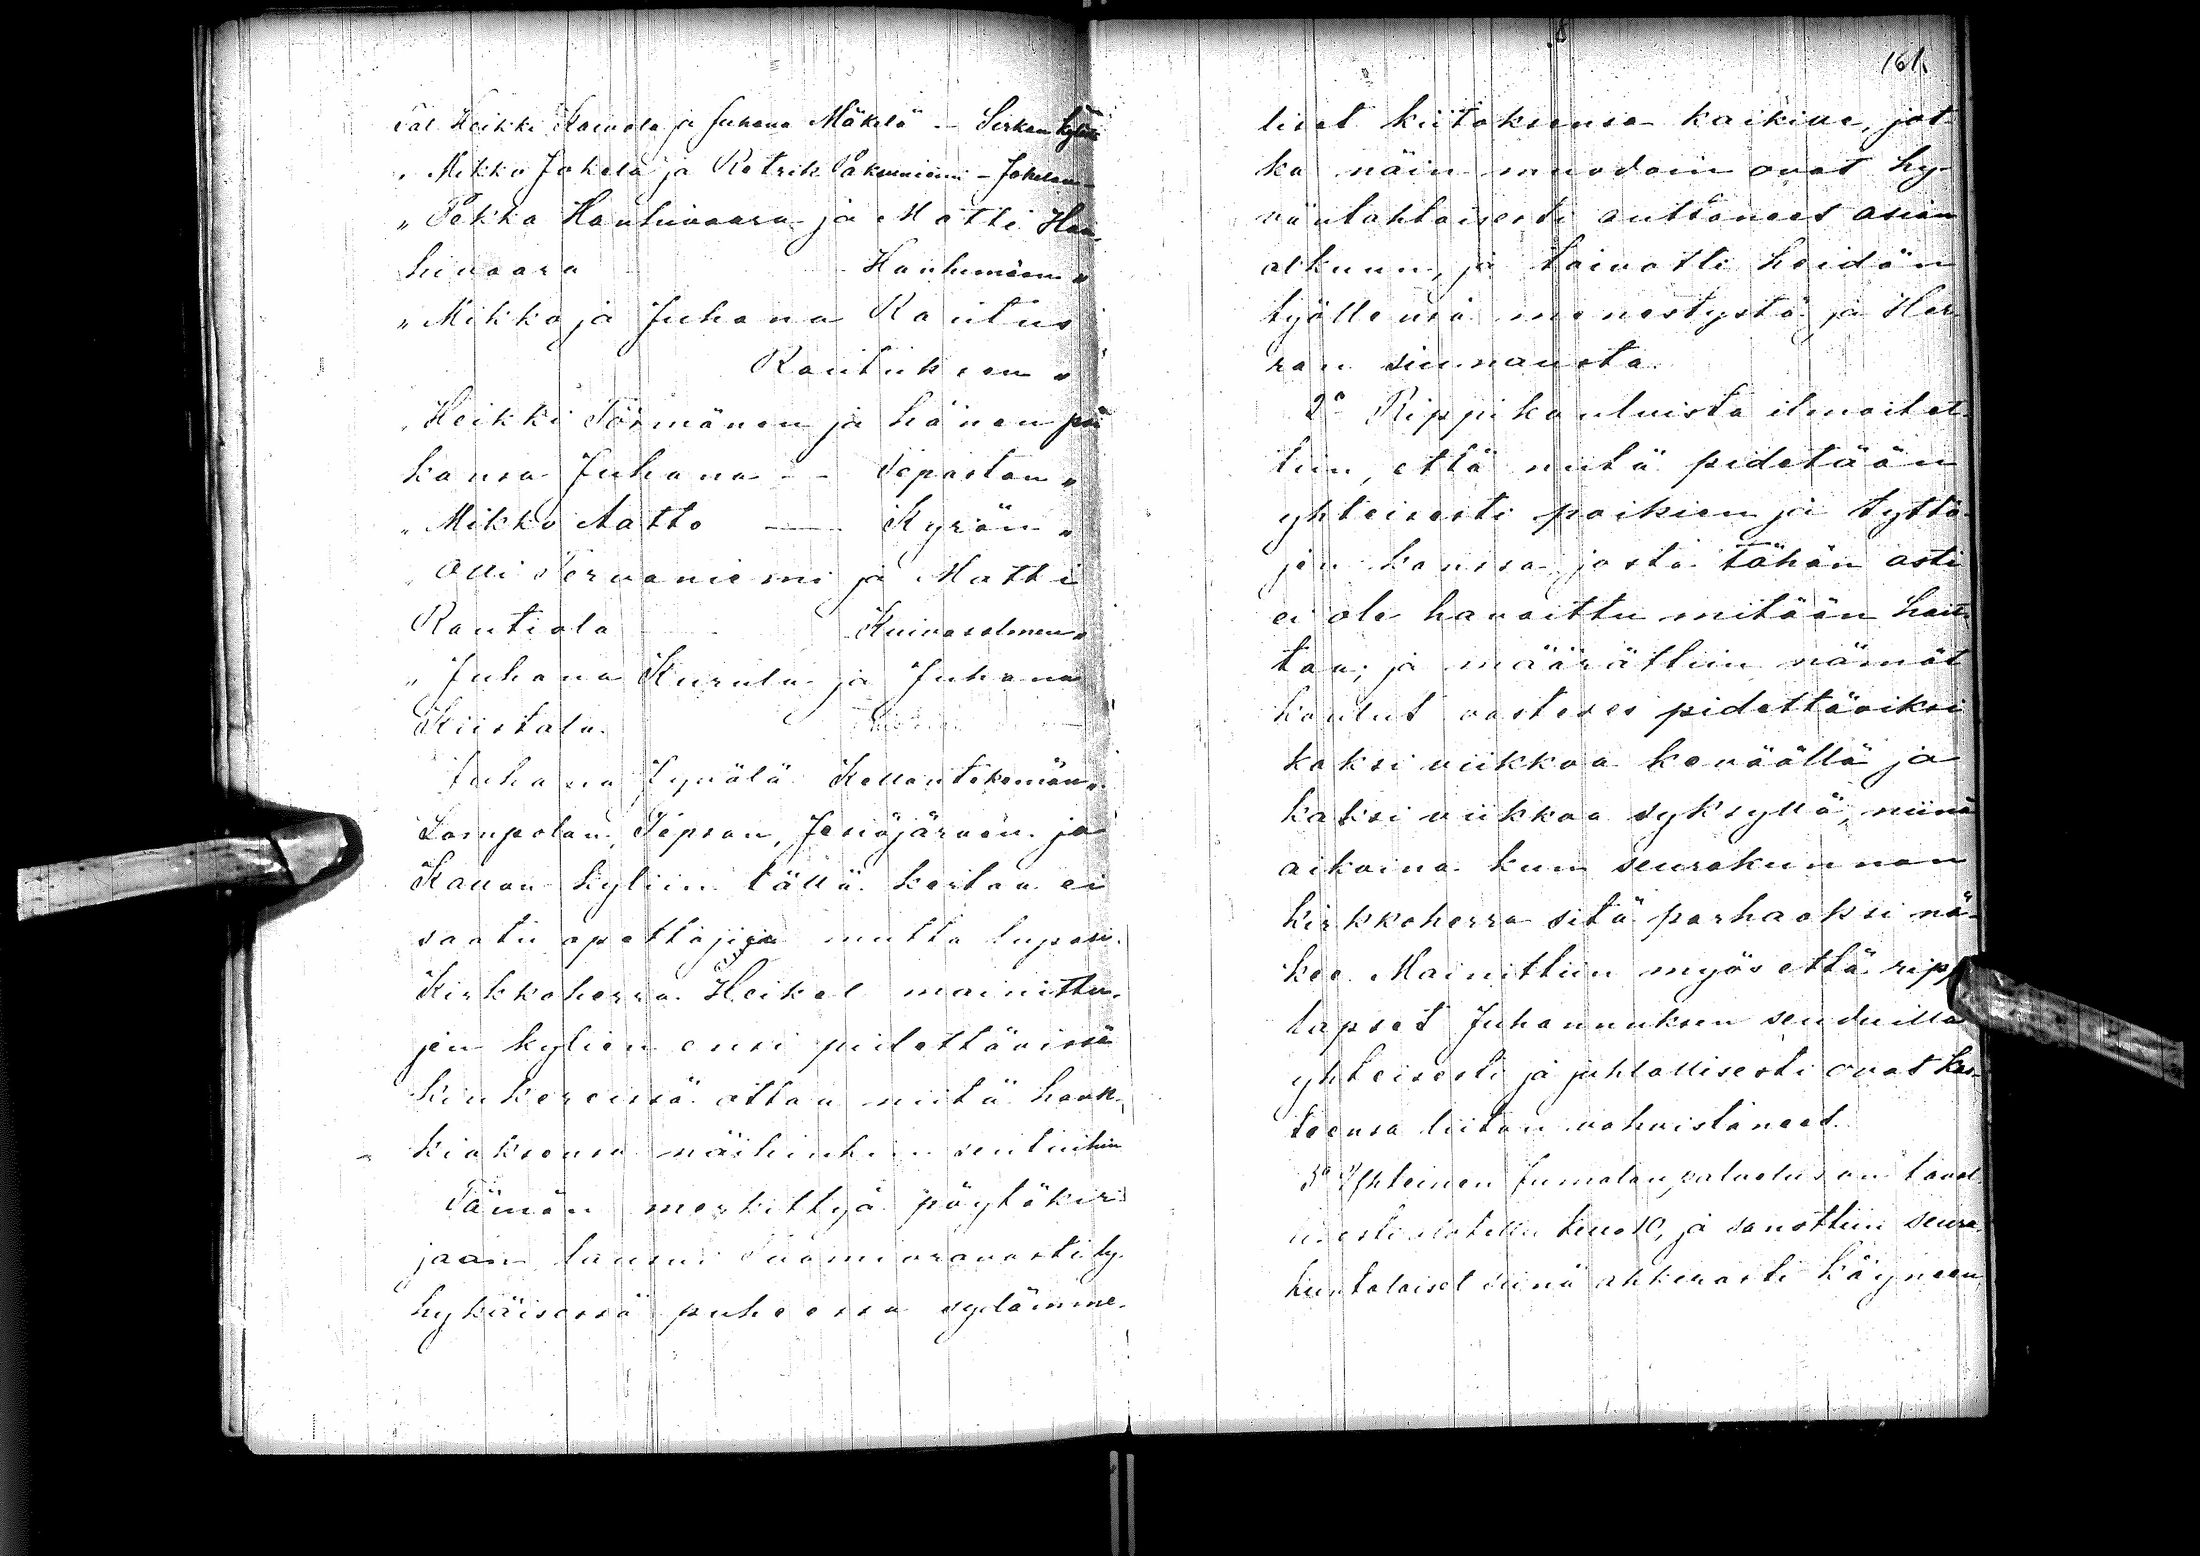 Tal Heikki Kaivola ja Juhana Mäkelä - Sirkan kylän
" Mikko Jokela ja Retrik Pakonniemi - Jokelan
" Pekka Hanhivaara ja Matti Han-
hivaara Hanhimaan "
" Mikko ja Juhana Rautus
Rautuksen "
" Heikki Törmänen ja hänen poi
kansa Juhana - - Sepaston "
" Mikko Aatto - Kyrön "
Olli Tervaniemi ja Matti
Rautiola Kuivasalmen "
" Juhana Kurula ja Juhana
Kiistala
Juhana Kellontekemän "
Lompolan, Tepson, Jesiöjärven ja
Kallon kyliin tällä kertaa ei
saatu opettajija mutta lupasi
Kirkkoherra Heikel mainittu-
jen kylien ensi pidettävissä
kinkereissä ottaa niitä hank-
kiaksensa näihinkin seutuihin
Tämän merkittyä pöytäkir
jaan lausui Tuomiorovasti ly-
hykäisessä puheessa sydämme-
161.
liset kiitoksensa kaikille, jot
ka näin muodoin ovat hy-
väntahtoisesti auttaneet asian
alkuun, ja toivotti heidän
työllensä menestystä ja Her
ran siunausta.
2o Rippikouluista ilmoitet
tiin, että niitä pidetään
yhteisesti poikien ja tyttö-
jen kanssa josta tähän asti
ei ole havaittu mitään hait-
taa; ja määrättiin nämät
koulut vasteses pidettäviksi
kaksi viikkoa keväällä ja
kaksi viikkoa syksyllä, niinä
aikoina kun seurakunnan
kirkkoherra sitä parhaaksi nä-
kee. Mainittiin myös että ripp
lapset Juhannuksen seuduilla
yhteisesti ja juhlallisesti ovat kas-
teensa liiton vahvistaneet.
3o Yhteinen Jumalan palvelus on taval
lisesti alotettu k:lo 10, ja sanottiin seura-
kuntalaiset siinä ahkerasti käyneen,